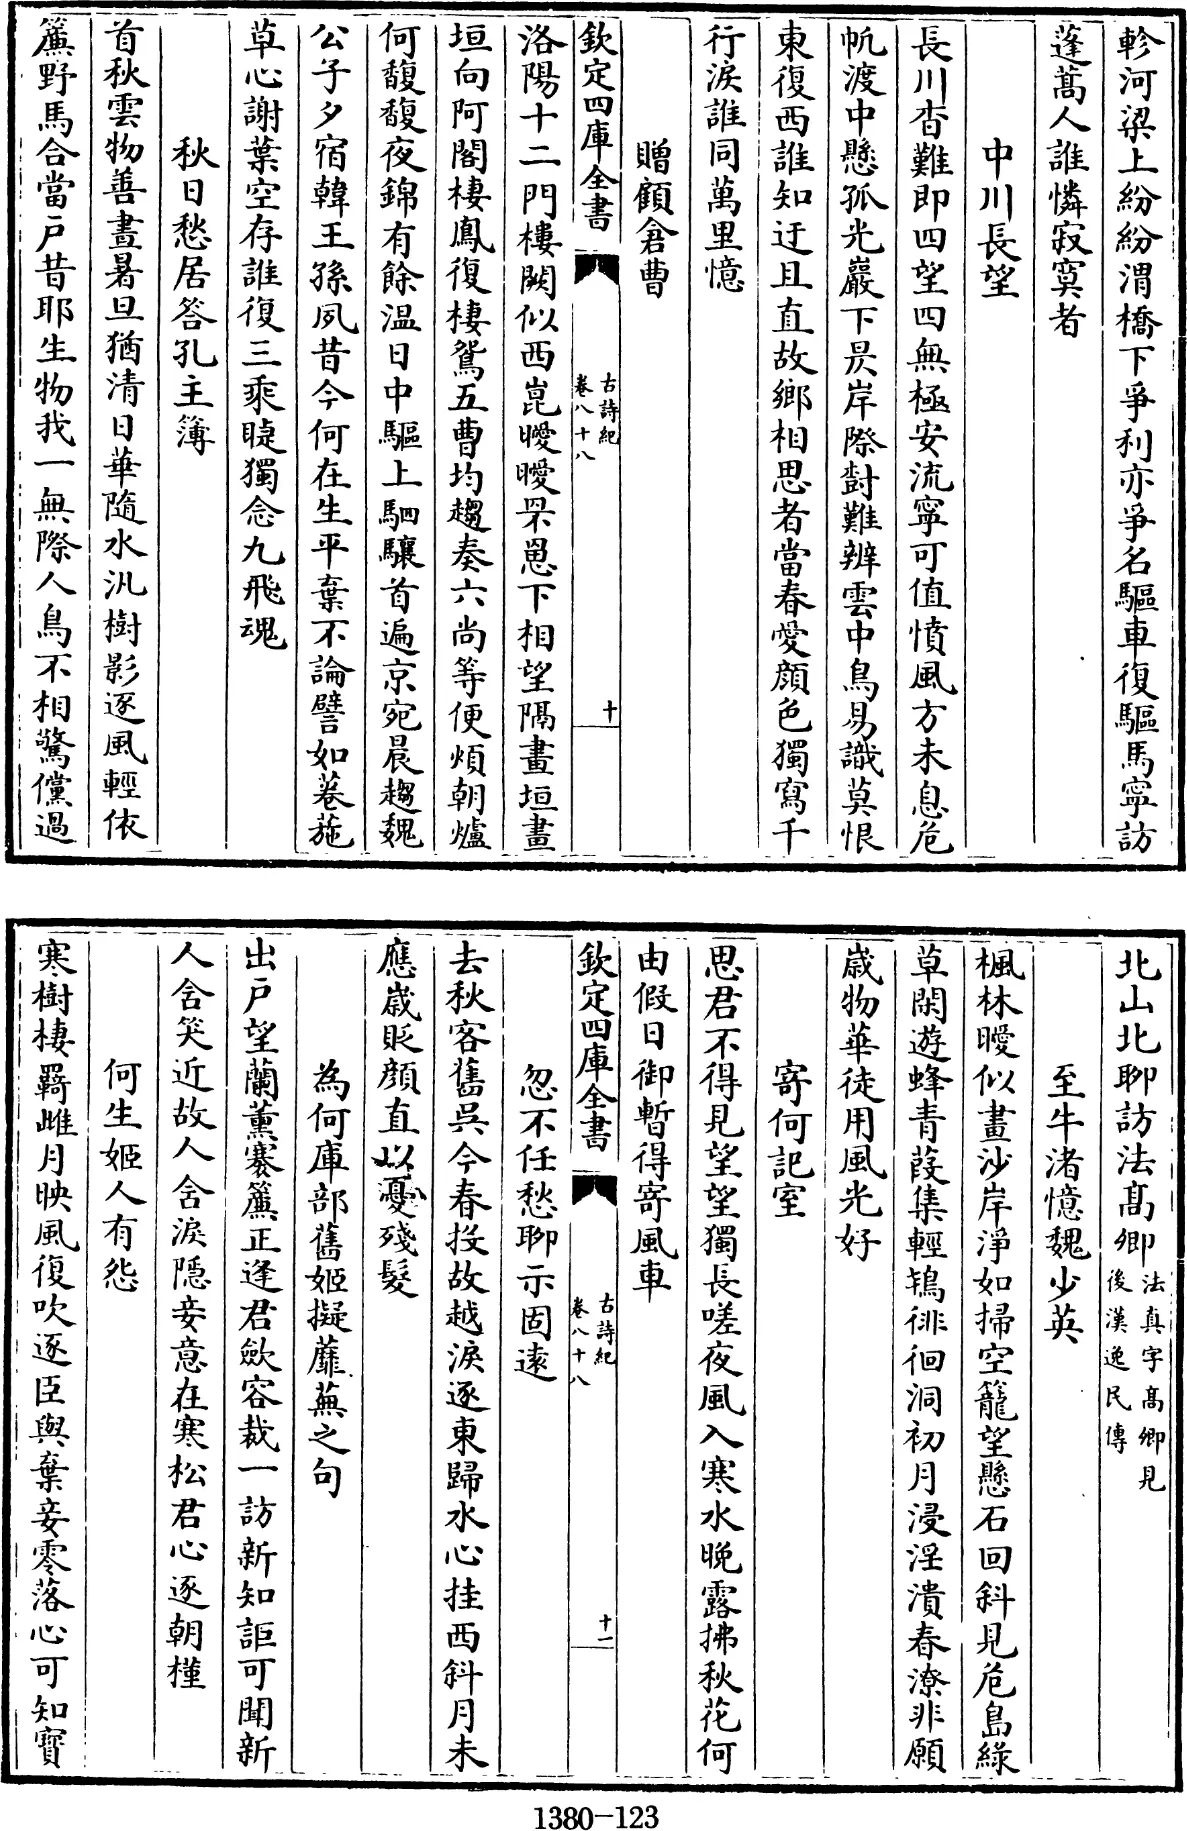 軫河梁上紛紛渭橋下爭利亦爭名驅車復驅馬寧訪
蓬蒿人誰憐寂寞者
中川長望
長川杳難即四望四無極安流寧可值憤風方未息危
帆渡中懸孤光巖下昃岸際樹難辨雲中鳥易識莫恨
東復西誰知迂且直故鄉相思者當春愛顏色獨寫千
行淚誰同萬里憶
贈顧倉曹
欽定四庫全書
古詩紀
卷八十八
十
洛陽十二門樓闕似西崑曖曖罘罳下相望隔畫垣畫
垣向阿閣棲鳳復棲鴛五曹均趨奏六尚等便煩朝爐
何馥馥夜錦有餘温日中驅上駟驤首遍京宛晨趨魏
公子夕宿韓王孫夙昔今何在生平棄不論譬如菤葹
草心謝葉空存誰復三乘睫獨念九飛魂
秋日愁居答孔主簿
首秋雲物善晝暑旦猶清日華隨水汎樹影逐風輕依
簾野馬合當戶昔耶生物我一無際人鳥不相驚儻過
北山北聊訪法髙卿
法真字髙卿見
後漢逸民傳
至牛渚憶魏少英
楓林曖似畫沙岸淨如掃空籠望懸石回斜見危島綠
草閑遊蜂青葭集輕鴇徘徊洞初月浸淫潰春潦非願
歲物華徒用風光好
寄何記室
思君不得見望望獨長嗟夜風入寒水晚露拂秋花何
由假日御暫得寄風車
欽定四庫全書
古詩紀
卷八十八
十一
忽不任愁聊示固逺
去秋客舊吳今春投故越淚逐東歸水心挂西斜月未
應歲貶顏直以憂殘髮
為何庫部舊姬擬蘼蕪之句
出戶望蘭薰褰簾正逢君歛容裁一訪新知詎可聞新
人含笑近故人含淚隱妾意在寒松君心逐朝槿
何生姬人有怨
寒樹棲羇雌月映風復吹逐臣與棄妾零落心可知寶
1380-123